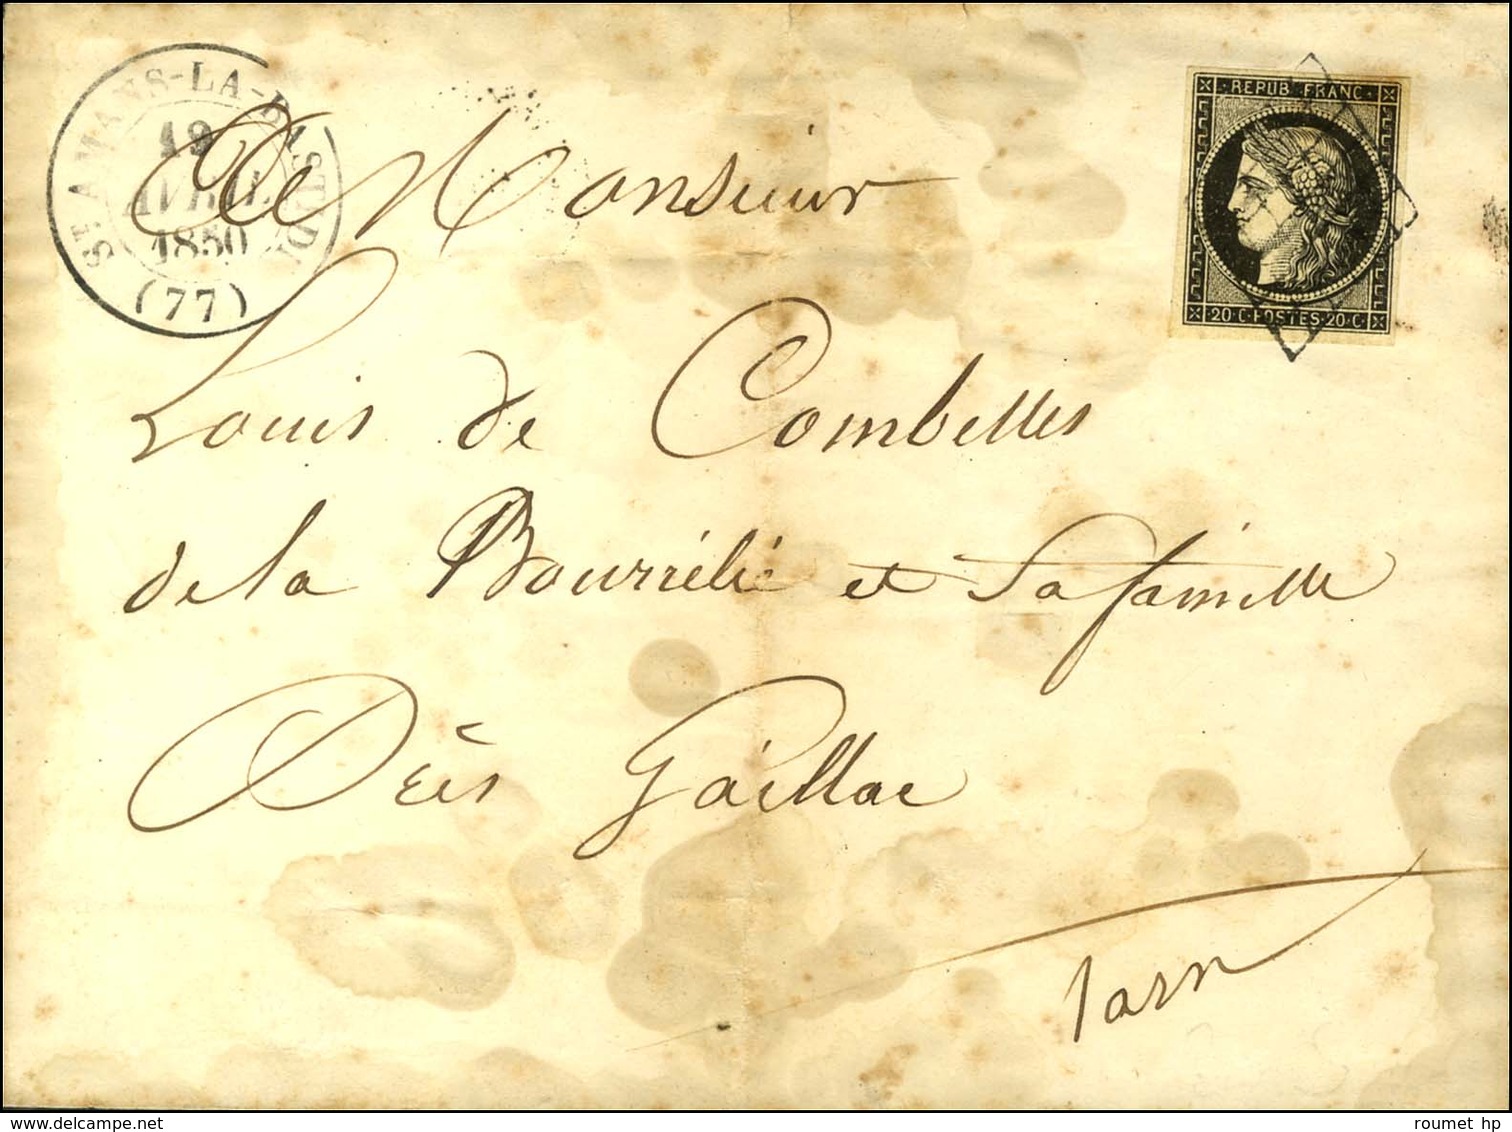 ST AMANS-LA-BASTIDE
19
AVRIL
1850
(77)
REPUB. FRANC.
20.C.POSTES.20.C
A Monsieur
Louis de Combettes
de la Bourrélié et Sa famille
Près Gaillac
Tarn
roumet hp